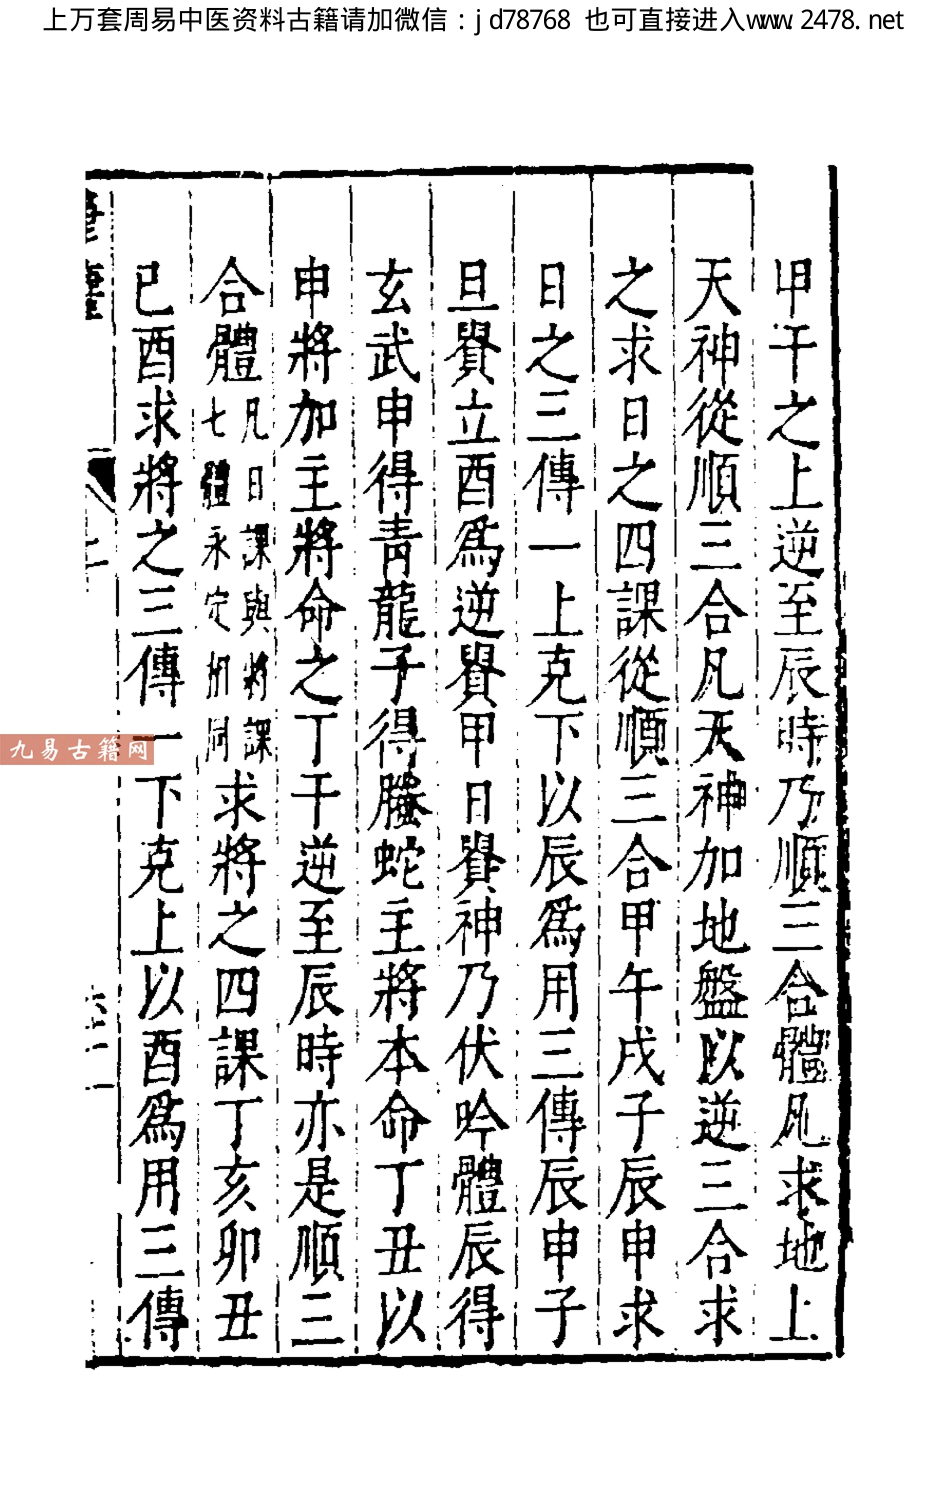 上万套周易中医资料古籍请加微信：jd78768 也可直接进入www.2478.net
甲干之上逆至辰時乃順三合體凡求地上
天神從順三合凡天神加地盤以逆三合求
之求日之四課從順三合甲午戌子辰申求
日之三傳一上克下以辰爲用三傳辰申子
旦貴立酉爲逆貴甲日貴神乃伏吟體辰得
玄武申得青龍子得螣蛇主將本命丁丑以
申將加主將命之丁干逆至辰時亦是順三
合體凡日課與將課七體永定相同求將之四課丁亥卯丑
巳酉求將之三傳一下克上以酉爲用三傳
九易古籍网